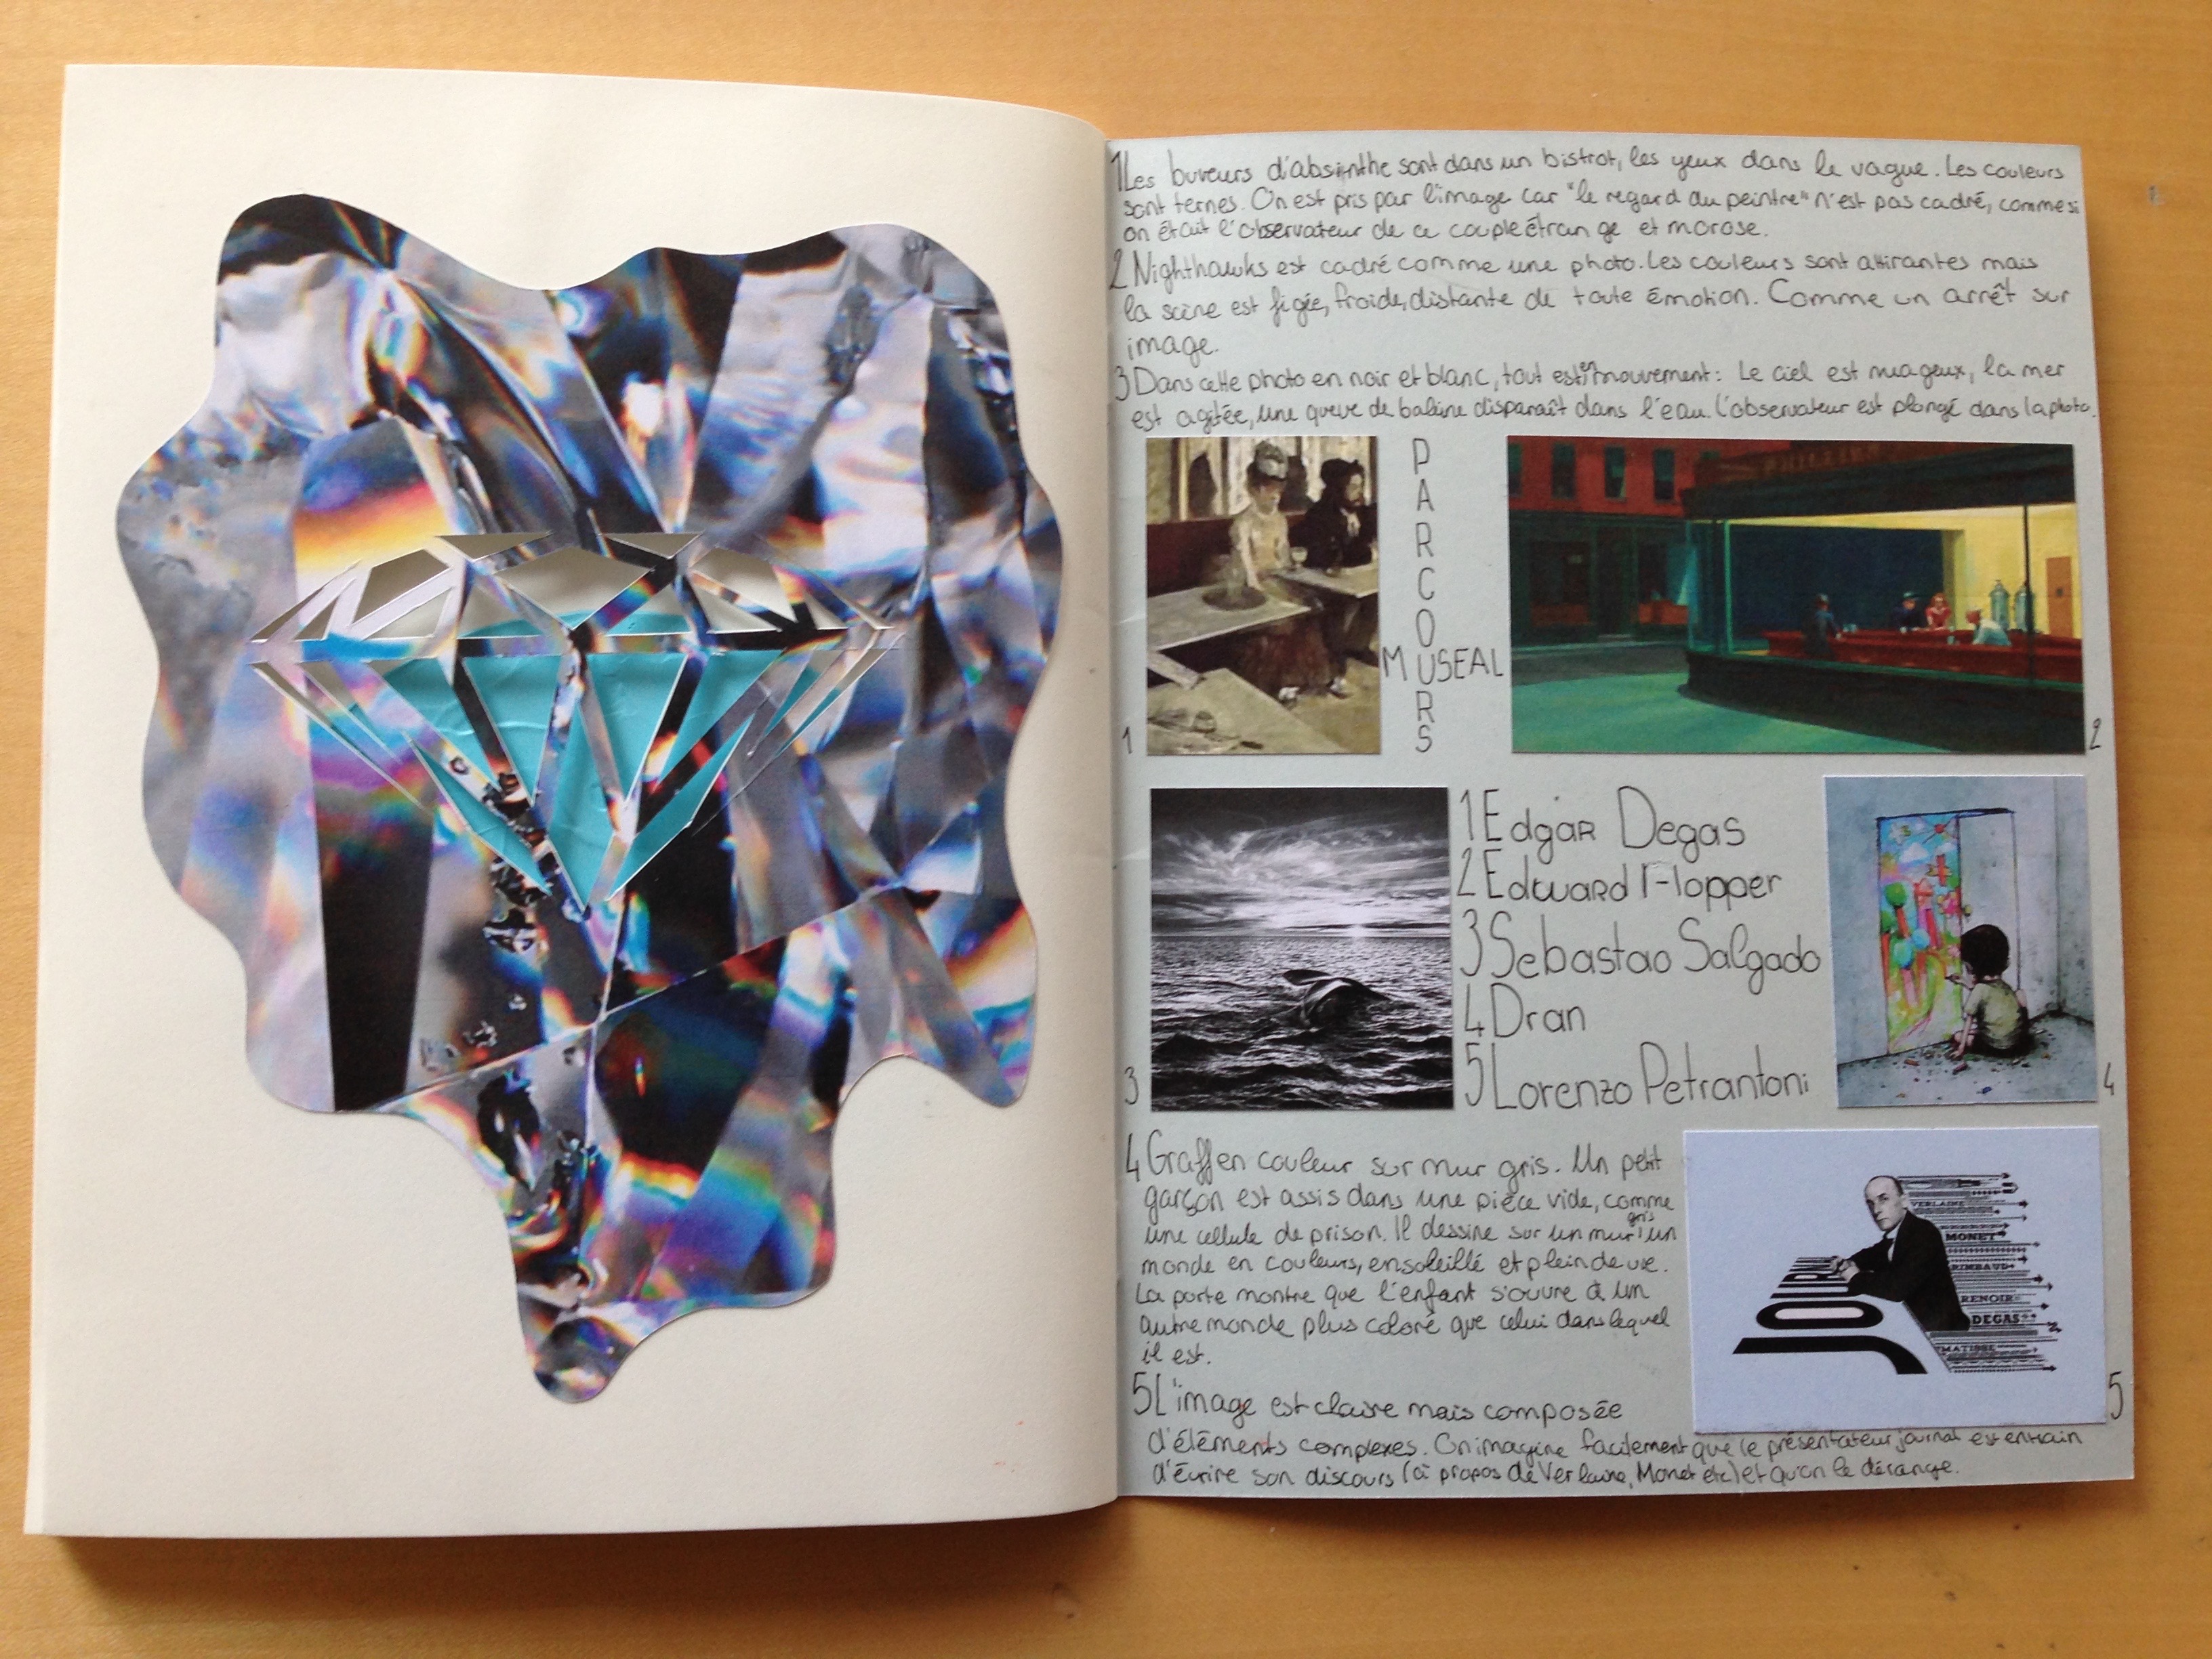 1 Les buveurs d'absinthe sont dans un bistrot, les yeux dans le vague. Les couleurs
sont ternes. On est pris par l'image car "le regard du peintre" n'est pas cadré, comme si
on était l'observateur de ce couple étrange et morose.
2 Nighthawks est cadré comme une photo. Les couleurs sont attirantes mais
la scène est figée, froide, distante de toute émotion. Comme un arrêt sur
image.
3 Dans cette photo en noir et blanc, tout est en mouvement : Le ciel est nuageux, la mer
est agitée, une queue de baleine disparaît dans l'eau. L'observateur est plongé dans la photo.
PARCOURS
MUSEAL
PHILLIES
1
2
1 Edgar Degas
2 Edward Hopper
3 Sebastao Salgado
4 Dran
5 Lorenzo Petrantoni
3
4
4 Graff en couleur sur mur gris. Un petit
garçon est assis dans une pièce vide, comme
une cellule de prison. Il dessine sur un mur gris un
monde en couleurs, ensoleillé et plein de vie.
La porte montre que l'enfant s'ouvre à un
autre monde plus coloré que celui dans lequel
il est.
VERLAINE
MONET
RIMBAUD
RENOIR
DEGAS
MATISSE
JOUR
5
5 L'image est claire mais composée
d'éléments complexes. On imagine facilement que le présentateur journal est entrain
d'écrire son discours (à propos de Verlaine, Monet etc) et qu'on le dérange.